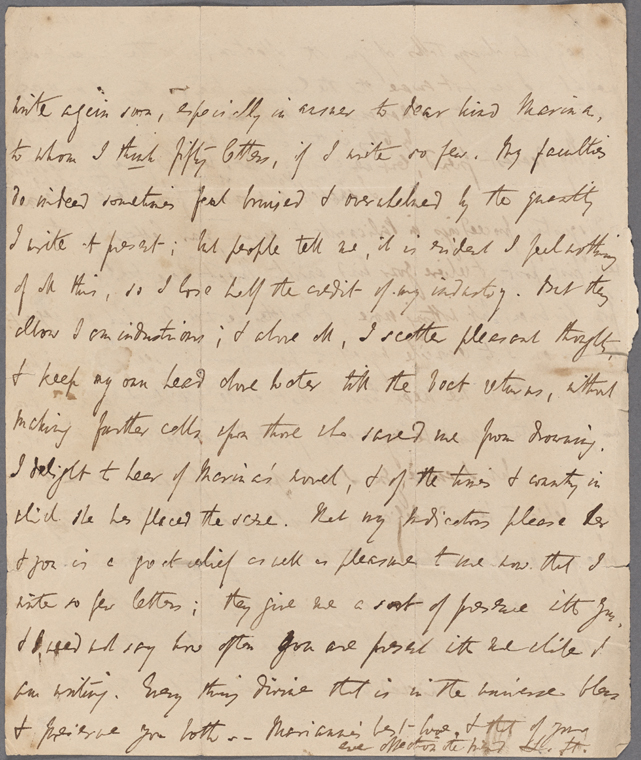 write again soon, especially in answer to dear kind Marina,
to whom I think fifty letters, if I write so few. My faculties
do indeed sometimes feel bruised & overwhelmed by the quantity
I write at present; but people tell me, it is evident I feel nothing
of all this, so I lose half the credit of my industry. But they
allow I am industrious; & above all, I scatter pleasant thoughts,
& keep my own head above water till the boat returns, without
making further calls upon those who saved me from drowning.
I delight to hear of Marina's novel, & of the times & country in
which she has placed the scene. That my Indicators please her
& you is a great relief as well as pleasure to me now that I
write so few letters; they give me a sort of presence with you,
& I need not say how often you are present with me while I
am writing. Every thing divine that is in the universe bless
& preserve you both -- Marianne's best love, & that of your
ever affectionate friend L. H.